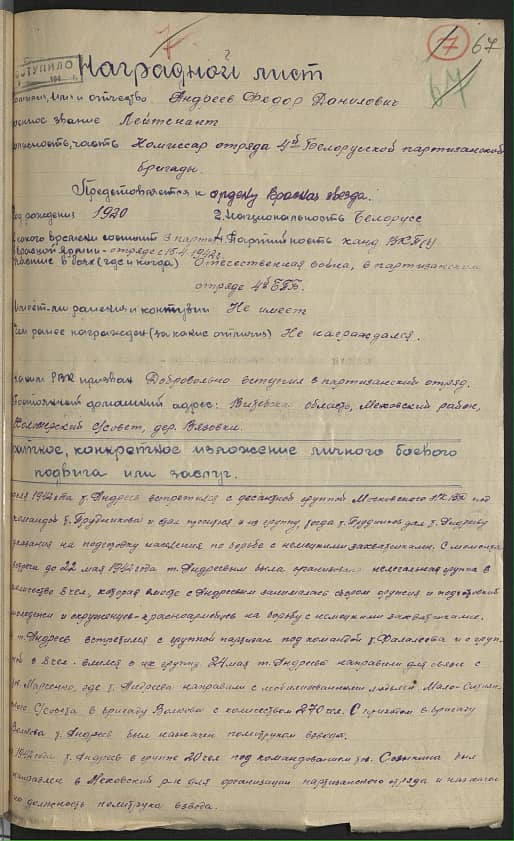 7 67
64
ПОСТУПИЛО
Наградной лист
имя и отчество Андреев Федор Данилович
звание Лейтенант
часть Комиссар отряда 4й Белорусской партизанской
бригады.
Представляется к ордену Красная звезда.
рождения 1920 2. Национальность Белорусс
какого времени состоит в 4. Партийность канд. ВКП(б)
Красной армии - отряде с 15.4.1942г.
в боях (где и когда) Отечественная война, в партизанском
отряде 4й БПБ.
ли ранения и контузии Не имеет
ранее награжден (за какие отличия) Не награждался.
РВК призван Добровольно вступил в партизанский отряд.
домашний адрес: Витебская область, Меховский район,
С/совет, дер. Вязовки.
конкретное изложение личного боевого
подвига или заслуг.
1942 года т. Андреев встретился с десантной группой Московского под
командой т. Прудникова и просился в их группу, тогда т. Прудников дал т. Андрееву
указания на подготовку населения по борьбе с немецкими захватчиками. С момента
до 22 мая 1942 года т. Андреевым была организована нелегальная группа в
количестве 8 чел, которая вместе с Андреевым занималась сбором оружия и подготовкой
молодежи и окруженцев-красноармейцев на борьбу с немецкими захватчиками.
т. Андреев встретился с группой партизан под командой т. Фалалеева и с
в 8 чел - влился в их группу. 24 мая т. Андреева направили для связи с
Марченко, где т. Андреева направили с мобилизованными людьми Мало-
С/совета в бригаду Волкова с количеством 270 чел. С приходом в бригаду
т. Андреев был назначен политруком взвода.
1942 года т. Андреев в группе 20 чел под командованием был
направлен в Меховский р-н для организации партизанского отряда и назначен
на должность политрука взвода.